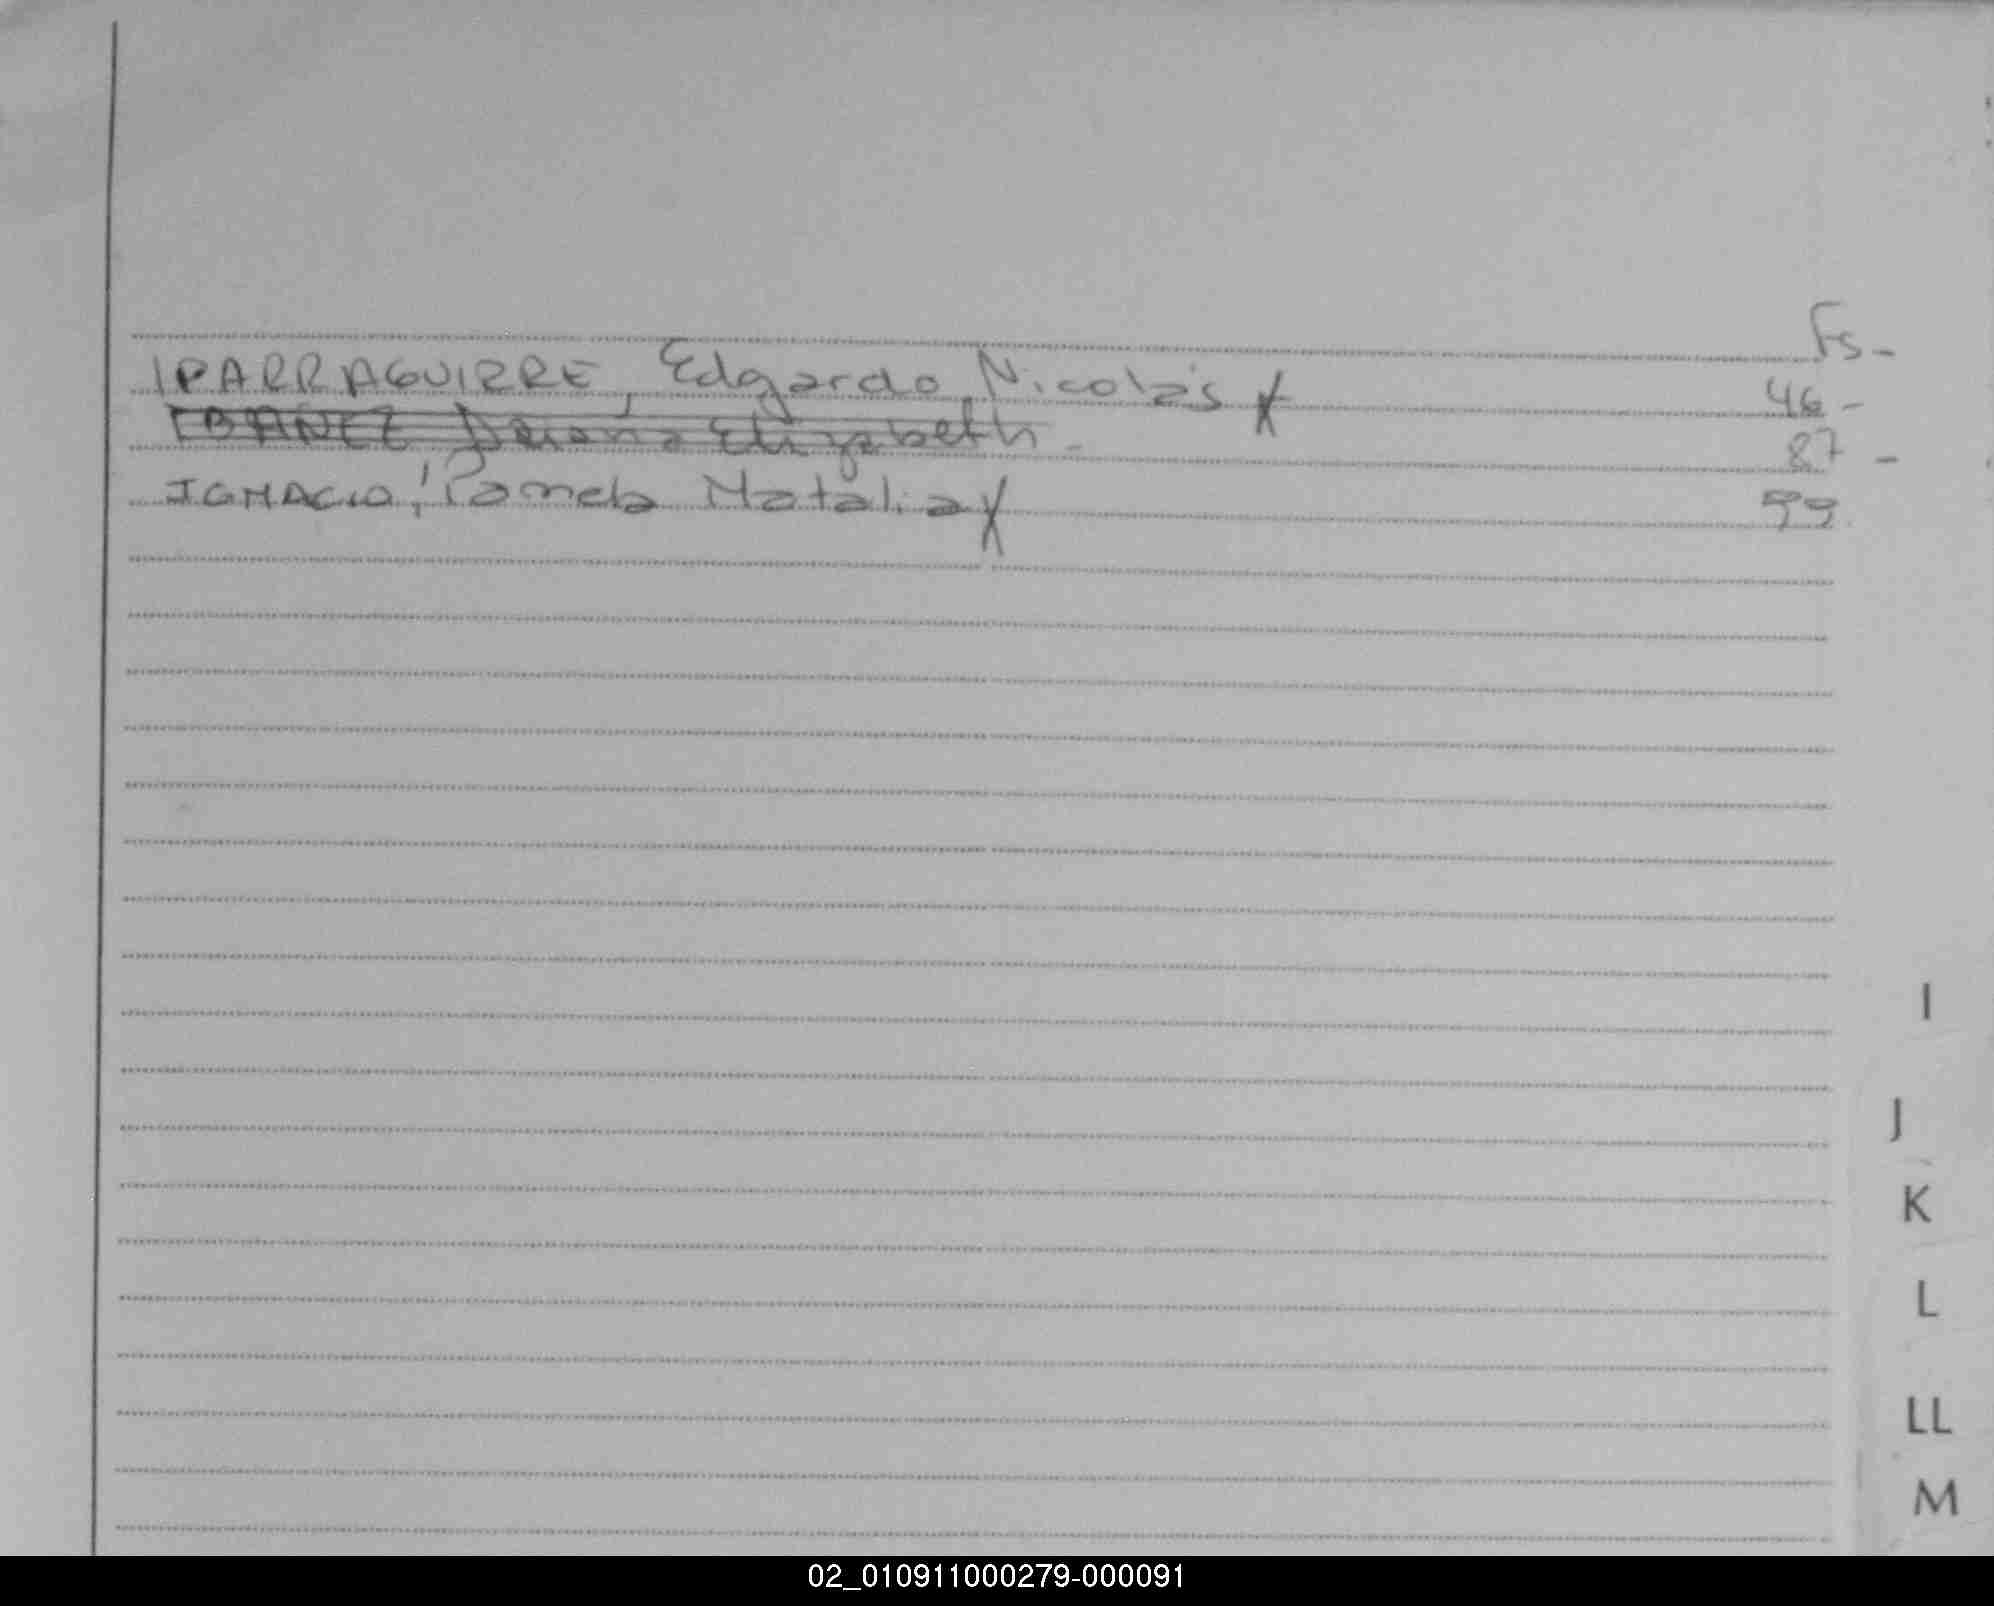 Fs-
IPARRAGUIRRE, Edgardo Nicolás X 46-
IBAÑEZ Daiana Elizabeth - 87 -
IGNACIO, Pamela Natalia X 99
I
J
K
L
LL
M
02_010911000279-000091